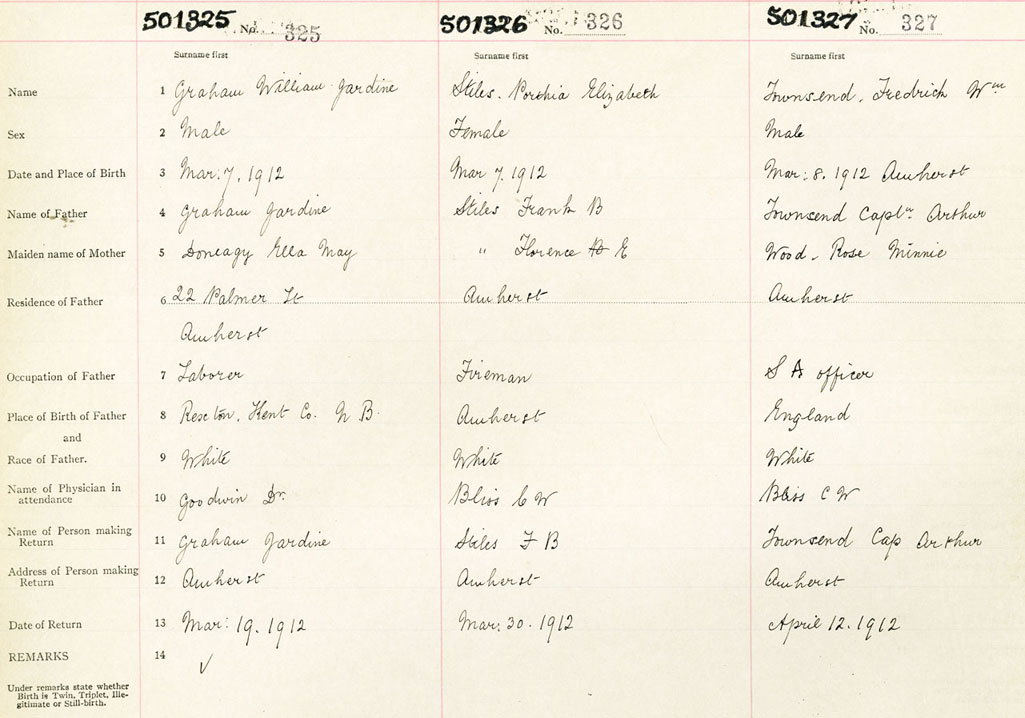 501325 No. 325 501326 No. 326 501327 No. 327
Surname first Surname first Surname first
Name 1 Graham William Jardine Stiles. Porthia Elizabeth Townsend, Fredrick Wm
Sex 2 Male Female Male
Date and Place of Birth 3 Mar: 7, 1912 Mar 7. 1912 Mar: 8. 1912 Amherst
Name of Father 4 Graham Jardine Stiles Frank B Townsend Captn Arthur
Maiden name of Mother 5 Doneagy Ella May " Florence E Wood, Rose Minnie
Residence of Father 6 22 Palmer St Amherst Amherst
Amherst
Occupation of Father 7 Laborer Fireman S A officer
Place of Birth of Father 8 Rexton, Kent Co. N B. Amherst England
and
Race of Father. 9 White White White
Name of Physician in
attendance 10 Goodwin Dr. Bliss C W Bliss C W
Name of Person making
Return 11 Graham Jardine Stiles F B Townsend Cap Arthur
Address of Person making
Return 12 Amherst Amherst Amherst
Date of Return 13 Mar: 19. 1912 Mar: 30. 1912 April 12. 1912
REMARKS 14 ✓
Under remarks state whether
Birth is Twin, Triplet, Ille-
gitimate or Still-birth.